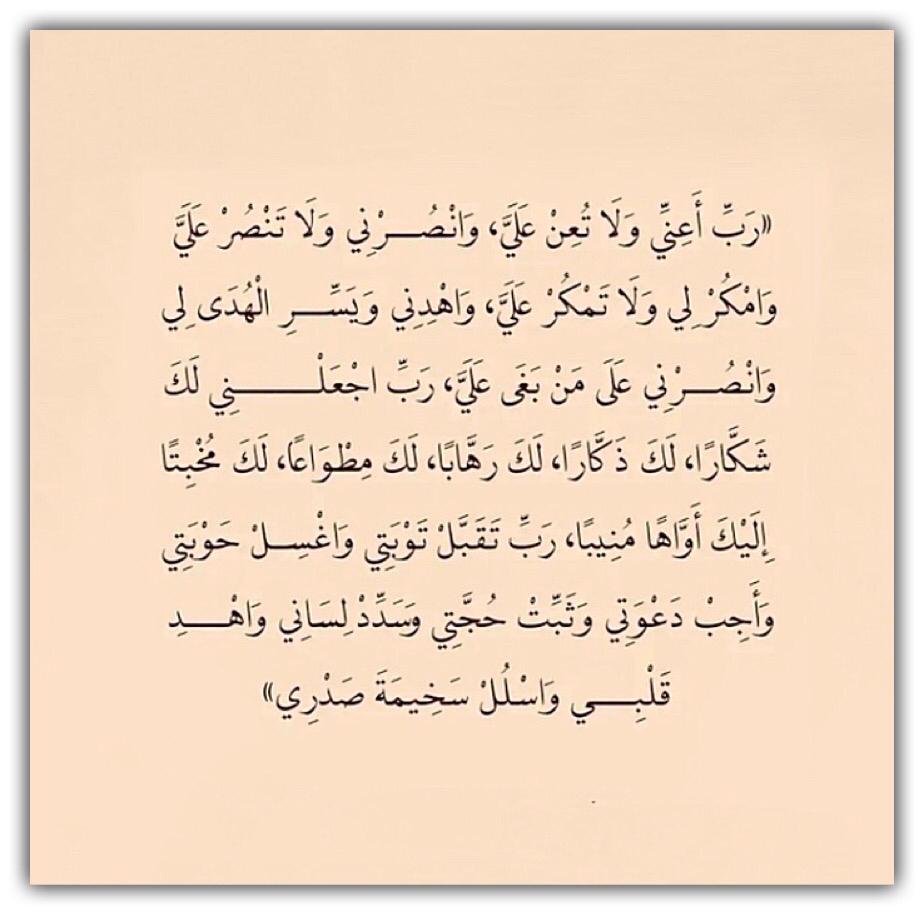 «رَبِّ أَعِنِّي وَلَا تُعِنْ عَلَيَّ، وَانْصُـــرْنِي وَلَا تَنْصُرْ عَلَيَّ
وَامْكُرْ لِي وَلَا تَمْكُرْ عَلَيَّ، وَاهْدِنِي وَيَسِّـــرِ الْهُدَى لِي
وَانْصُـــرْنِي عَلَى مَنْ بَغَى عَلَيَّ، رَبِّ اجْعَلْـــــنِي لَكَ
شَكَّارًا، لَكَ ذَكَّارًا، لَكَ رَهَّابًا، لَكَ مِطْوَاعًا، لَكَ مُخْبِتًا
إِلَيْكَ أَوَّاهًا مُنِيبًا، رَبِّ تَقَبَّلْ تَوْبَتِي وَاغْسِـلْ حَوْبَتِي
وَأَجِبْ دَعْوَتِي وَثَبِّتْ حُجَّتِي وَسَدِّدْ لِسَانِي وَاهْـــدِ
قَلْبِـــي وَاسْلُلْ سَخِيمَةَ صَدْرِي»